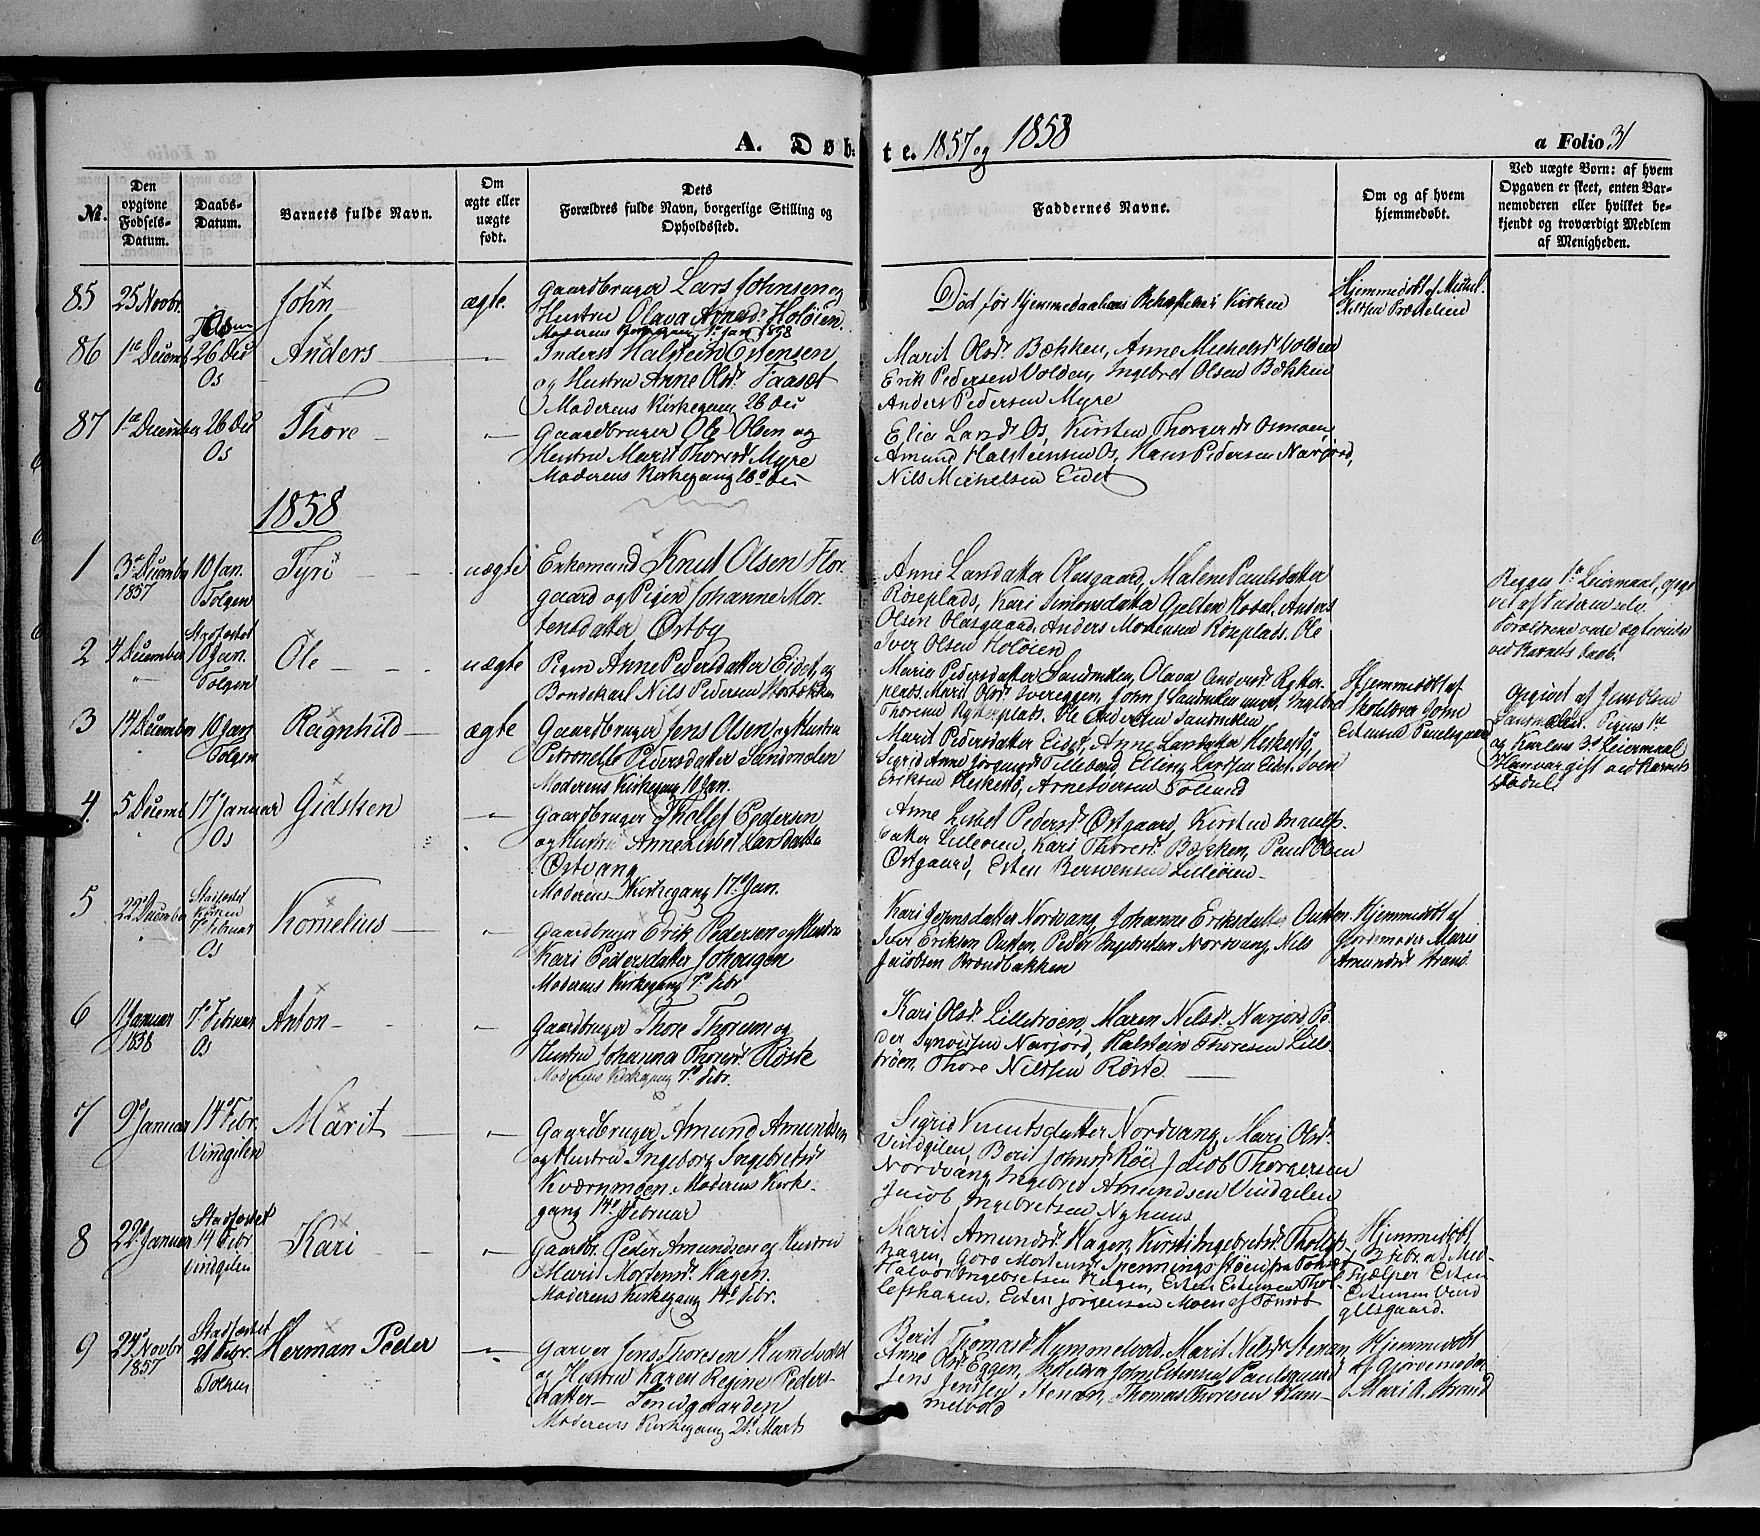 A. Døb-
te. 1857 og 1858
a Folio 31
Nr.
Den opgivne Fødsels-Datum.
Daabs-Datum.
Barnets fulde Navn.
Om ægte eller uægte født.
Dets Forældres fulde Navn, borgerlige Stilling og Opholdssted.
Faddernes Navne.
Om og af hvem hjemmedøbt.
Ved uægte Børn: af hvem Opgaven er skeet, enten Barnemoderen eller hvilket bekjendt og troværdigt Medlem af Menigheden.
85 25 Novbr. John ægte
Gaardbruger Lars Johnsen og
Hustru Olava Arnesdr Holøien.
Moderens Kirkegang 1ste Jan 1858
Død før Hjemmedaabens i Kirken
Hjemmedøbt af
86 1ste Decemb 26 Dec Os Anders
Inderst Halstein Estensen
og Hustru Anne Olsdr. Faaset
Moderens Kirkegang 26 Dec
Marit Olsdr. Bækken, Anne Michelsdr Volden
Erik Pedersen Volden, Ingebret Olsen Bækken
Anders Pedersen Myre
87 1ste December 26 Dec Os Thore
Gaardbruger Ole Olsen og
Hustru Marit Thoresdr Myre
Moderens Kirkegang Dec
Amund Halsteinsen Os, Hans Pedersen Narjord,
Nils Michelsen Eidet
1858
1 3de December 1857 10 Jan. Tolgen Tyri uægte
Enkemand Knut Olsen Flor-
gaard og Pigen Johanne Mor-
tensdatter Østby
Anne Larsdatter Olesgaard, Malene Paulsdatter
Røseplads, Kari Simonsdatter Gjelten Anders
Olsen Olasgaard, Anders Mortensen Røseplads. Ole
Iver Olsen Holøien
Begges 1ste Leiermaal, opgi-
vet af Faderen selv.
Forældrene vare ægteviede
ved Barnets Daab.
2 4 December Stadfæstet 10 Jan. Tolgen Ole uægte
Pigen Anne Pedersdatter Eidet, og
Bondekarl Nils Pedersen
Marie Pedersdatter Sandmælen, Olava
Hjemmedøbt af
Skolelærer John
Estensen Paulsgaard
Opgivet af Jens Olsen
Sandmælen. Pigens 1ste
og Karlens 3de Leiermaal
Han var gift ved Barnets
Fødsel
3 14 December 10 Jan Tolgen Ragnhild ægte
Gaardbruger Jens Olsen og Hustru
Petronelle Pedersdatter Sandmælen
Moderens Kirkegang 10 Jan.
Marit Pedersdatter Eidet, Anne Larsdatter
Eriksen Arne Iversen
4. 5 Decemb 17 Januar Os Gidsken
Gaardbruger Thollef Pedersen
og Hustru Anne Lisbet Larsdatter
Østvang
Moderens Kirkegang 17de Jan.
Anne Lisbet Pedersdr Østgaard, Kirsten
datter Lilleøien, Kari Thoresdr. Bækken, Paul Olsen
Østgaard, Esten Berwensen Lilleøien
5 22de December Stadfæstet Kirken 7de Februar Os Kornelius
Gaardbruger Erik Pedersen og Hustru
Kari Pedersdatter Johaugen
Moderens Kirkegang 7de Febr
Kari Jensdatter Nordvang, Johanne Eriksdatter Ousten
Iver Eriksen Ousten, Peder Ingebretsen Nordvang, Nils
Jacobsen Brændbakken
Hjemmedøbt af
Gjordemoder Marie
Amundsdr Strand
6 1 Januar 1858 7de Februar Os Anton
Gaardbruger Thore Thoresen og
Hustru Johanna Thoresdr Røste
Moderens Kirkegang 7de Febr.
Kari Olsdr. Lillestrøen, Maren Nilsdr. Narjord Pe-
der Narjord, Halstein Thoresen Lille-
strøen, Thore Nilssen Røste.
7 9de Januar 14de Febr. Vindgilen Marit
Gaardbruger Amund Amundsen
og Hustru Ingeborg Ingebretsdr
Kværnmoen. Moderens Kirke-
gang 14de Februar
Sigrid Knutsdatter Nordvang, Mari Olsdr.
Vindgilen, Berit Johnsdr Røe, Jacob Thorgersen
Nordvang, Ingebret Amundsen Vindgilen
Jacob Ingebretsen Nyhuus
8 22de Januar Stadfæstet 14 Febr Vindgilen Kari
Gaardbr. Peder Amundsen og Hustru
Marit Mortensdr. Hagen.
Moderens Kirkegang 14de Febr.
Marit Amundsdr. Hagen, Kirsti Ingebretsdr. Thollefs-
hagen, Goro Mortensdr Støen fra Tønset
Halvor Ingebretsen Hagen, Esten Estensen Thol-
lefshagen, Esten Jørgensen Moen af Tønset
Hjemmedøbt
2 Febr af Med-
hjælper Esten
Estensen Vind-
gilsgaard.
9 24de Novbr 1857 Stadfæstet 21 Febr. Tolgen Herman Peder
Garver Jens Thoresen Hummelvold
og Hustru Karen Regine Peders-
datter
Moderens Kirkegang 21de Marts
Berit Thomasdr Hummelvold, Marit Nilsdr Stenen
Anne Olsdr Eggen, Skolelærer John Estensen Paulsgaard
Jens Jensen Stenen, Thomas Thoresen Hum-
melvold
Hjemmedøbt
af Gjordemoder
Mari A. Strand